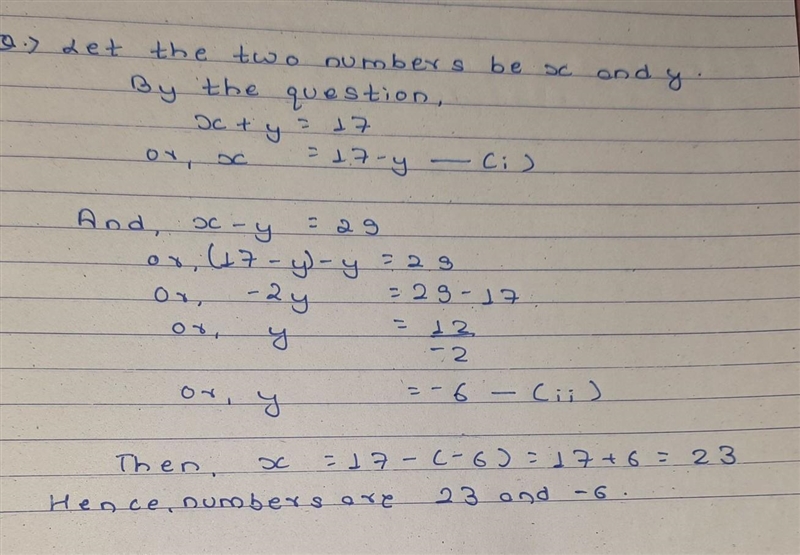 Q.> Let the two numbers be x and y.
By the question,
x + y = 17
or, x = 17 - y — (i)
And, x - y = 29
or, (17 - y) - y = 29
or, -2y = 29 - 17
or, y = 12
-2
or, y = -6 — (ii)
Then, x = 17 - (-6) = 17 + 6 = 23
Hence, numbers are 23 and -6.